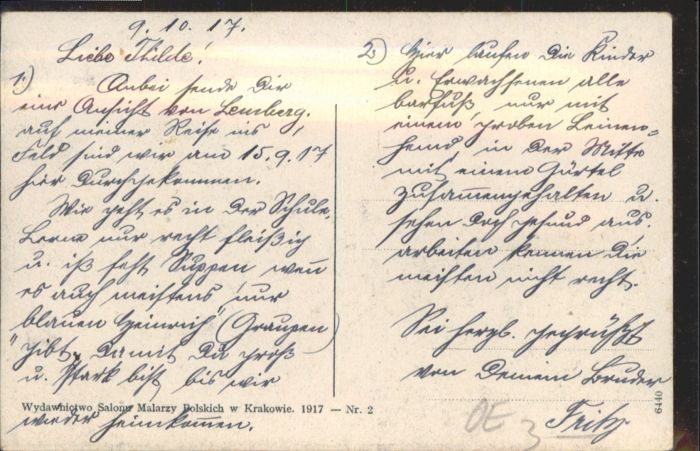 9.10.17.
Liebe Thilde!
1.) Anbei sende Dir
eine Ansicht von Lemberg,
auf meiner Reise ins
Feld sind wir am 15.9.17
hier durchgekommen.
Wie geht es in der Schule.
Lerne nur recht fleißig
u. iß fest Suppen, wenn
es auch meistens nur
blauen Heinrich (Graupen)
gibt, damit Du groß
u. stark bist bis wir
wieder heimkommen.
2.) Hier laufen die Kinder
u. Erwachsenen alle
barfuß nur mit
einem groben Leinen=
hemd, in der Mitte
mit einem Gürtel
zusammengehalten u.
sehen doch gesund aus.
arbeiten kennen die
meisten nicht recht.
Sei herzl. gegrüßt
von Deinem Bruder
Fritz
Wydawnictwo Salonu Malarzy Polskich w Krakowie. 1917 — Nr. 2
6440
OE
3